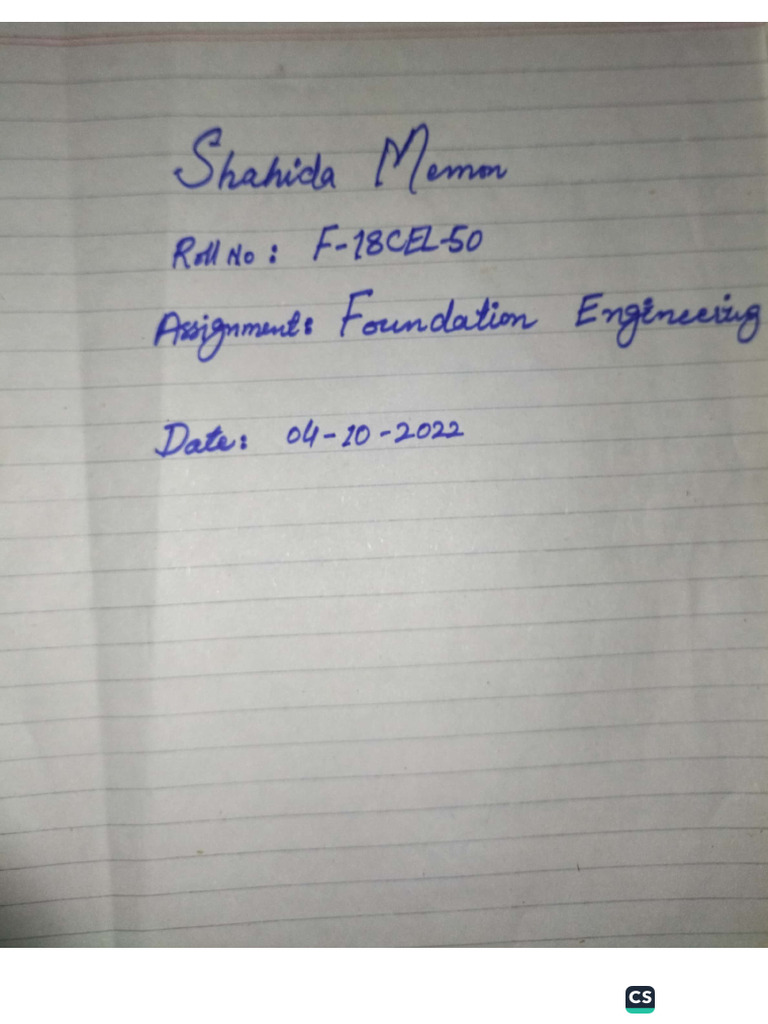 Shahida Memon
Roll No: F-18CEL-50
Assignment: Foundation Engineering
Date: 04-10-2022
CS